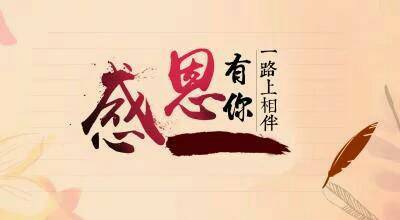 感恩有你
一路上相伴